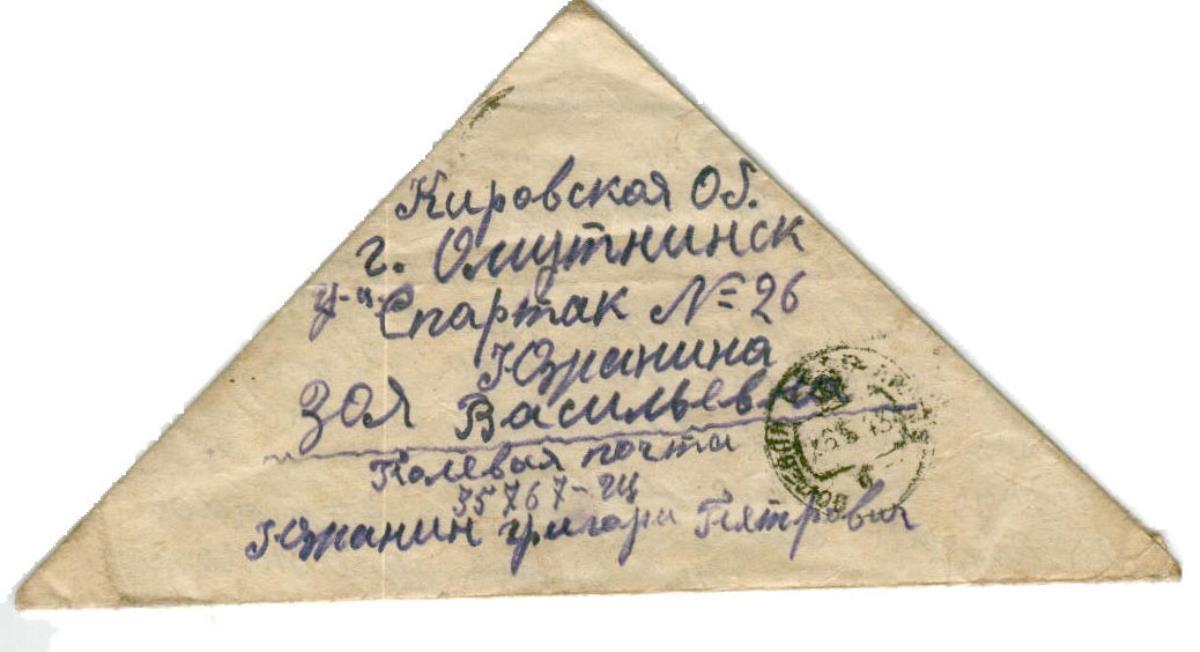 Кировская Об.
г. Омутнинск
ул. Спартак № 26
Южанина
Зоя Васильевна
Полевая почта
35767-Щ
Южанин Григори Пятрович